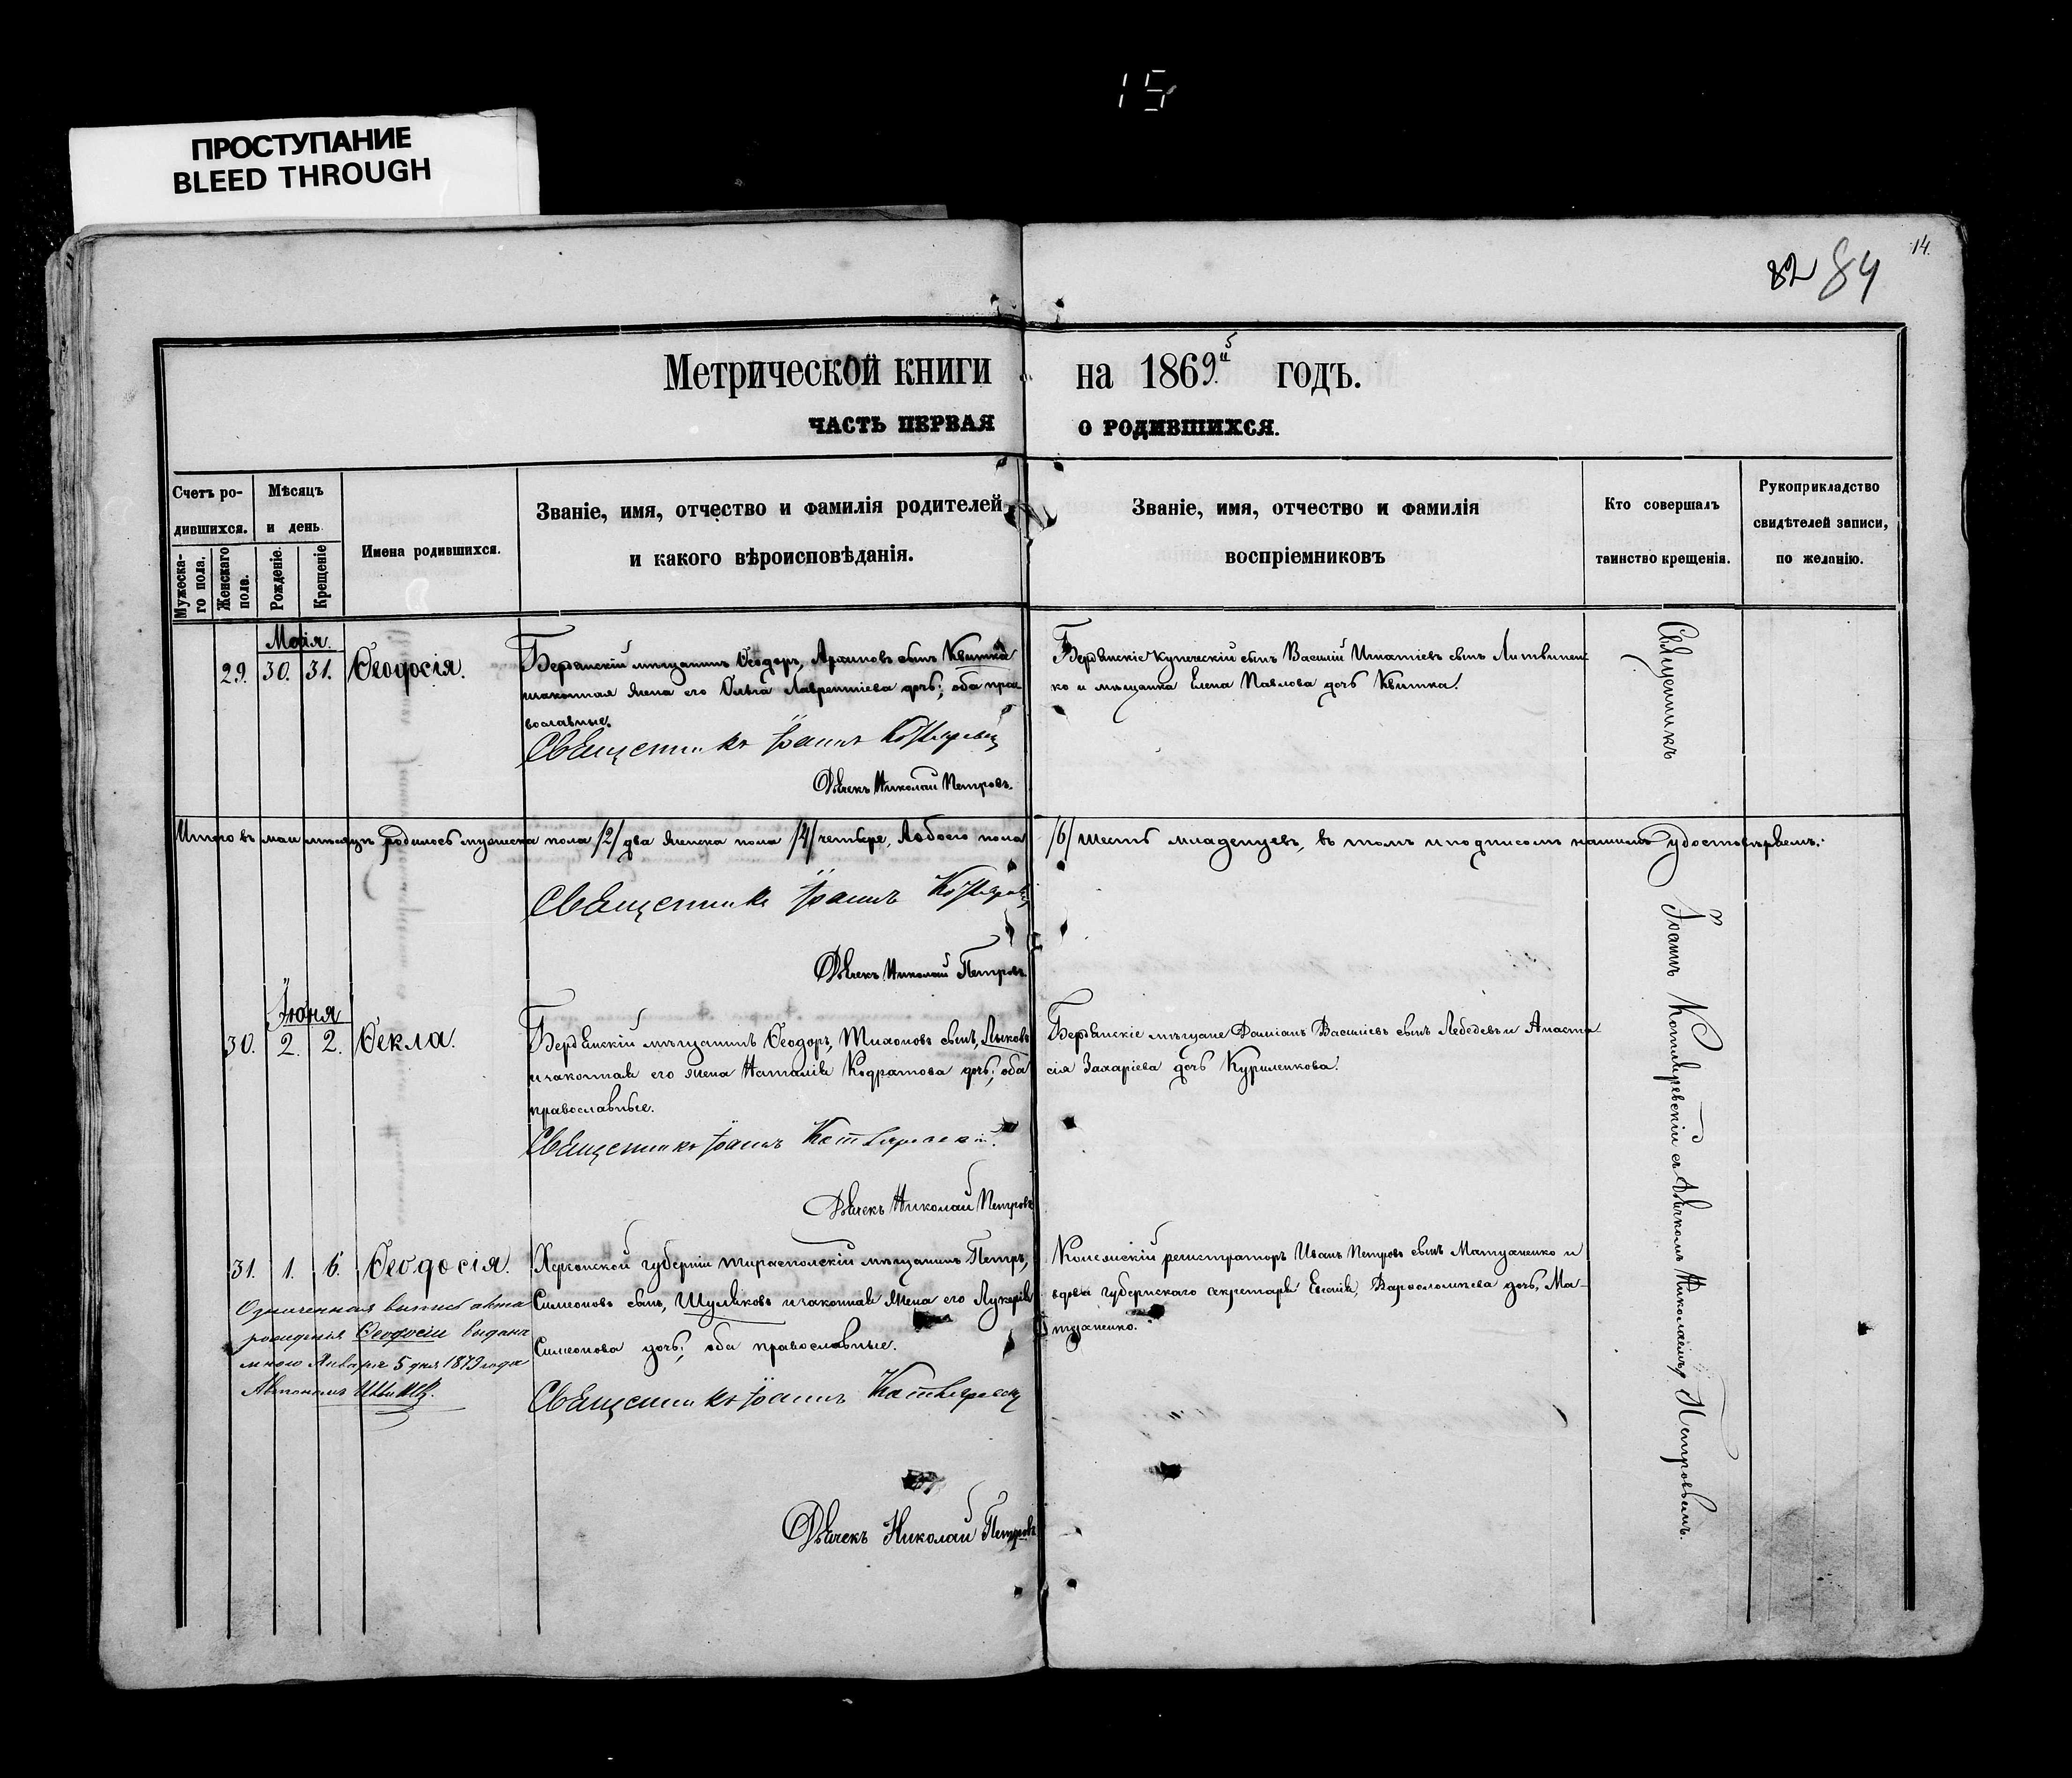 15
ПРОСТУПАНИЕ
BLEED THROUGH
82 84
14.
Метрической книги на 1869й годъ.
ЧАСТЬ ПЕРВАЯ О РОДИВШИХСЯ.
Счетъ ро-
дившихся.
Мѣсяцъ
и день
Мужеска-
го пола.
Женскаго
пола.
Рожденіе.
Крещеніе
Имена родившихся.
Званіе, имя, отчество и фамилія родителей
и какого вѣроисповѣданія.
Званіе, имя, отчество и фамилія
воспріемниковъ
Кто совершалъ
таинство крещенія.
Рукоприкладство
свидѣтелей записи,
по желанію.
Маія.
29. 30. 31. Ѳеодосія.
Бердянскій мѣщанинъ Ѳеодоръ, Архиповъ сынъ Квитка
и законная жена его Ольга Лаврентіева дочь; оба пра
вославные.
Священникъ Іоаннъ
Дьячекъ Николай Петровъ.
Бердянскіе купеческій сынъ Василій Игнатіевъ сынъ Литвинен
ко и мѣщанка Елена Павлова дочь Квитка.
Итого въ маи мѣсяцѣ родилось мужеска пола /2/ два женска пола /4/ четыре, Аобоего пола /6/ шесть младенцевъ, въ томъ и подписомъ нашимъ удостовѣряемъ:
Священникъ Іоаннъ
Дьячекъ Николай Петровъ
Іюня
30. 2. 2. Ѳекла.
Бердянскій мѣщанинъ Ѳеодоръ, Тихоновъ сынъ, Лыковъ
и законная его жена Наталія Кодратова дочь; оба
православные.
Священникъ Іоаннъ Котляревскій.
Дьячекъ Николай Петровъ
Бердянскіе мѣщане Даміанъ Василіевъ сынъ Лебедевъ и Анаста
сія Захаріева дочь Куриленкова.
31. 1. 6. Ѳеодосія.
Херсонской губерніи тираспольскій мѣщанинъ Петръ,
Симеоновъ сынъ, Шуляковъ и законная жена его Лукерія
Симеонова дочь; оба православные.
Священникъ Іоаннъ Котляревскій
Дьячекъ Николай Петровъ
Колежскій регистраторъ Иванъ Петровъ сынъ Матузненко и
вдова губернскаго секретаря Евгенія, Варѳоломеева дочь, Ма-
тузненко.
выпись акта
рожденія Ѳеодосіи выдана
мною Января 5 дня 1873 года
Священникъ Іоаннъ Котляревскій съ дьячкомъ Николаемъ Петровымъ.